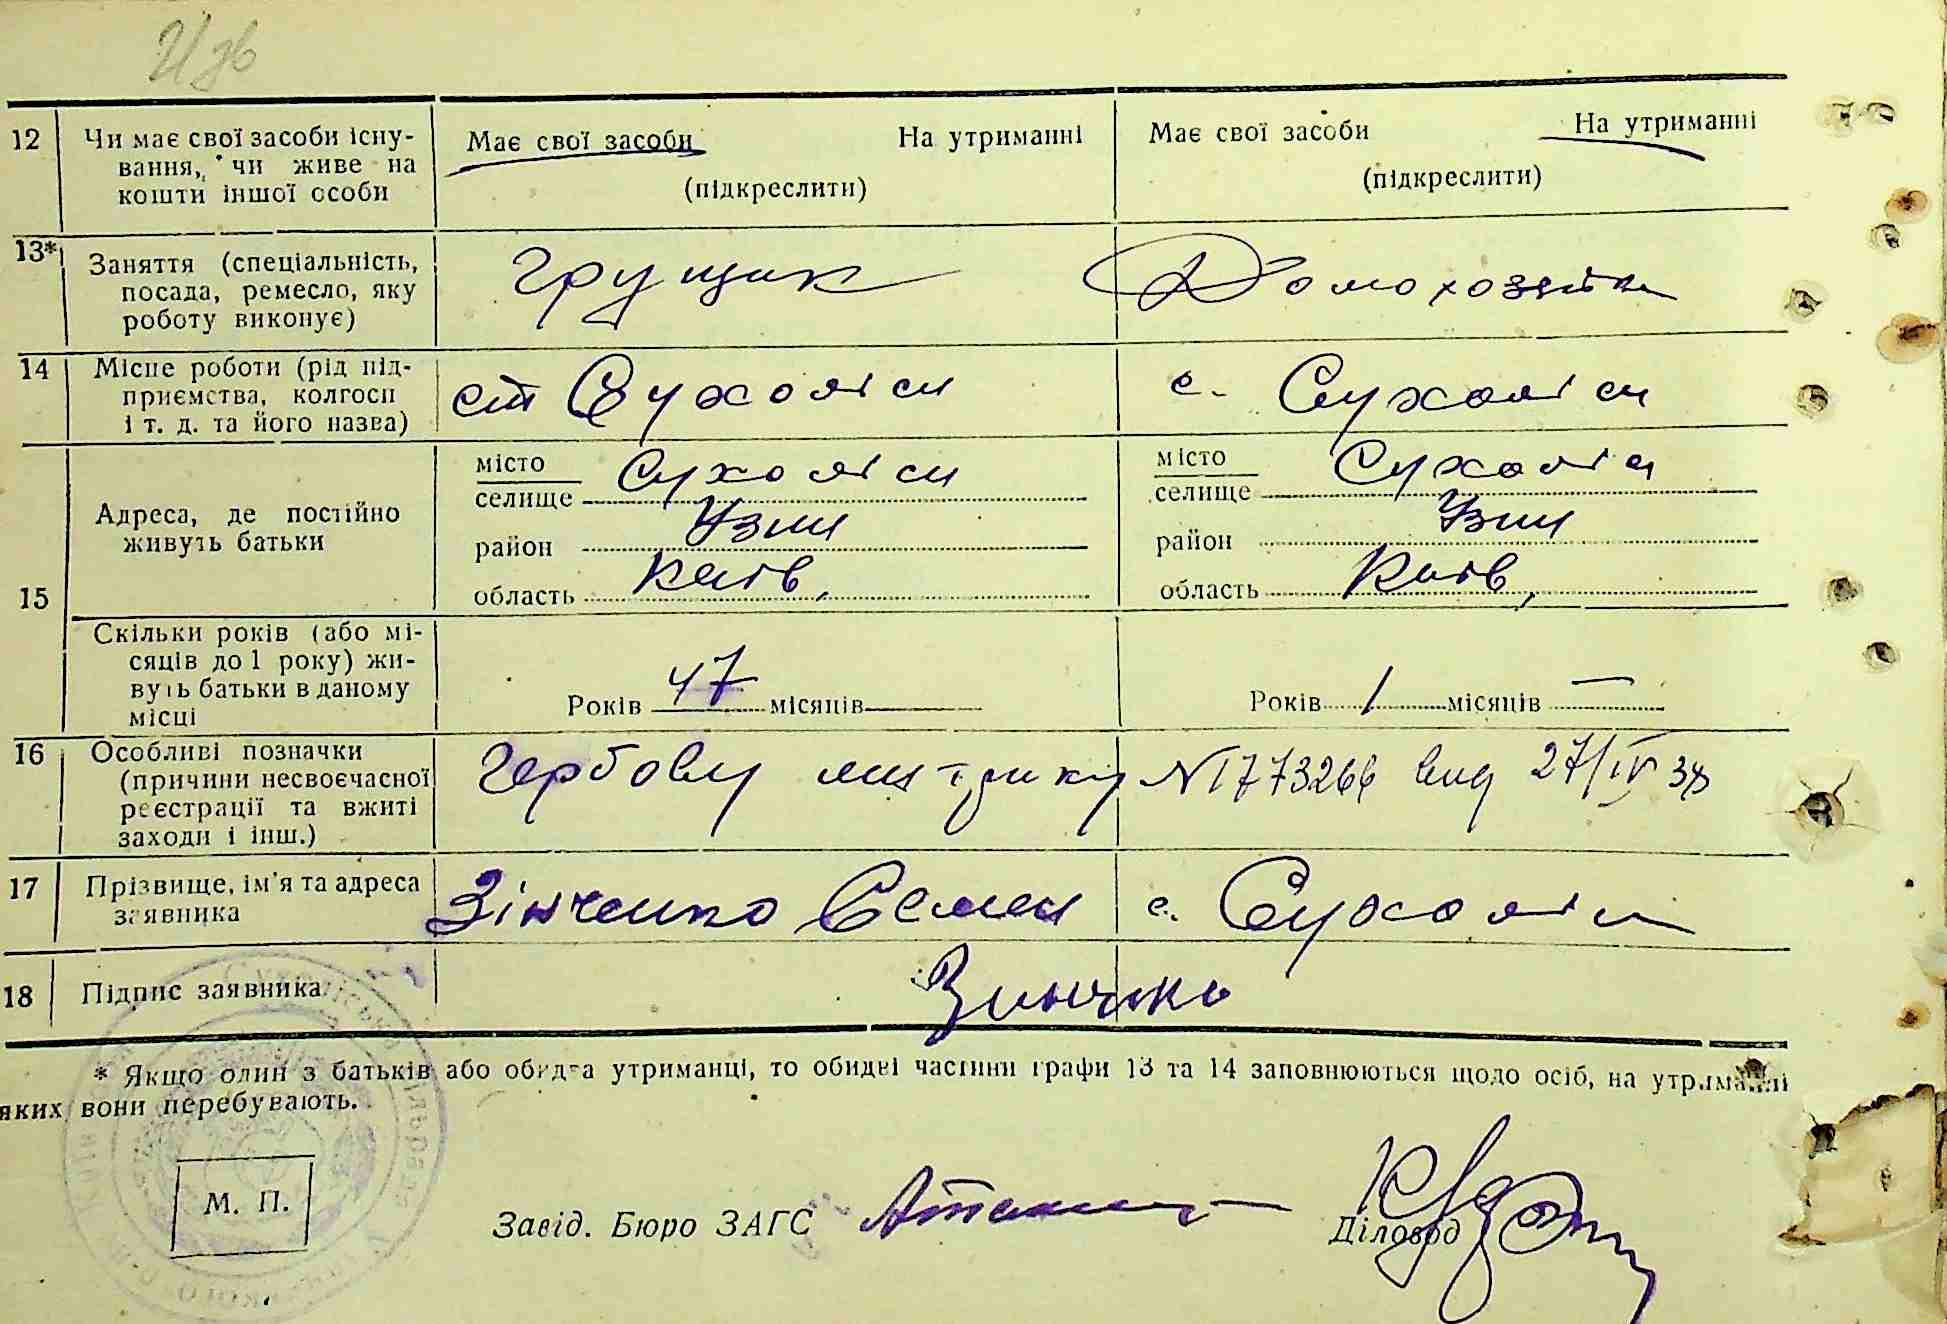 Изв
12 Чи має свої засоби існу- Має свої засоби На утриманні Має свої засоби На утриманні
вання, чи живе на (підкреслити) (підкреслити)
кошти іншої особи
13* Заняття (спеціальність, Грущик Домохозяйка
посада, ремесло, яку
роботу виконує)
14 Місце роботи (рід під- ст Сухоліси с. Сухоліси
приємства, колгосп
і т. д. та його назва)
15 Адреса, де постійно
живуть батьки
місто Сухоліси місто Сухоліси
селище селище
район Узин район Узин
область Київ, область Київ,
Скільки років (або мі-
сяців до 1 року) жи-
вуть батьки в даному
місці
Років 47 місяців Років 1 місяців —
16 Особливі позначки Гербову метрику N 1773266 вид 27/IV 38
(причини несвоєчасної
реєстрації та вжиті
заходи і інш.)
17 Прізвище, ім'я та адреса Зінченко Семен с. Сухоліси
заявника
18 Підпис заявника Зинченко
* Якщо один з батьків або обидва утриманці, то обидві частини графи 13 та 14 заповнюються щодо осіб, на утриманні
яких вони перебувають.
М. П.
Завід. Бюро ЗАГС Діловод